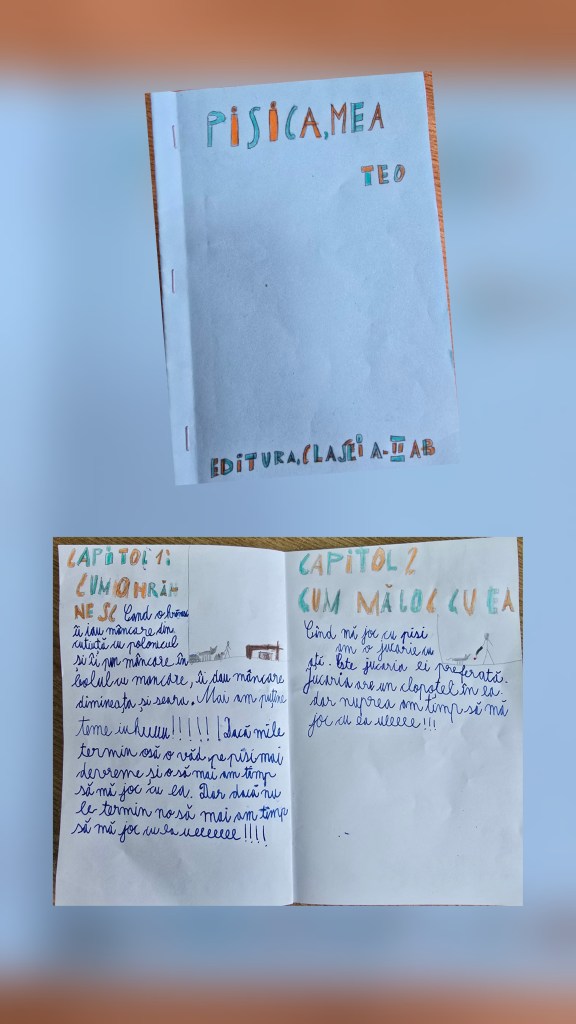 PISICA,MEA
TEO
EDITURA,CLASEI A-II AB
CAPITOL 1:
CUM O HRĂ
NESC Când o hrănesc
îi iau mâncare din
cutiuță cu polonicul
și îi pun mâncare în
bolul cu mancare, îi dau mâncare
dimineața și seara. Mai am puține
teme iuhuuu!!!!!! Dacă mile
termin osă o văd pe pisi mai
devreme și o să mai am timp
să mă joc cu ea. Dar dacă nu
le termin no să mai am timp
să mă joc cu ea ueeeeeee!!!!
CAPITOL 2
CUM MĂ JOC CU EA
Cînd mă joc cu pisi
am o jucărie cu
ață. Este jucăria ei preferată.
Jucaria are un clopoțel în ea.
dar nuprea am timp să mă
joc cu ea ueeeee!!!